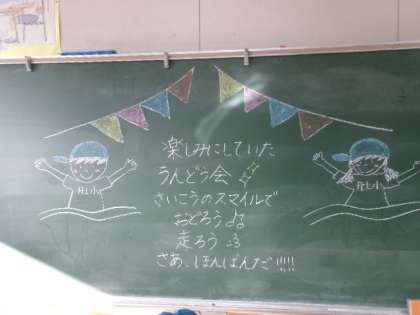 楽しみにしていた
うんどう会
さいこうのスマイルで
おどろう♫
走ろう
さあ、ほんばんだ!!!!!